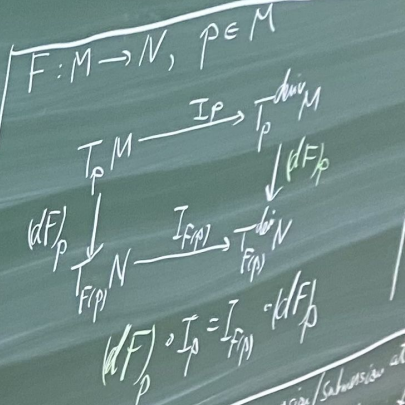 F : M → N, p ∈ M
T_p M —I_p→ T_p^{deriv} M
(dF)_p ↓ ↓ (dF)_p
T_{F(p)} N —I_{F(p)}→ T_{F(p)}^{der} N
(dF)_p ∘ I_p = I_{F(p)} ∘ (dF)_p
/submersion at